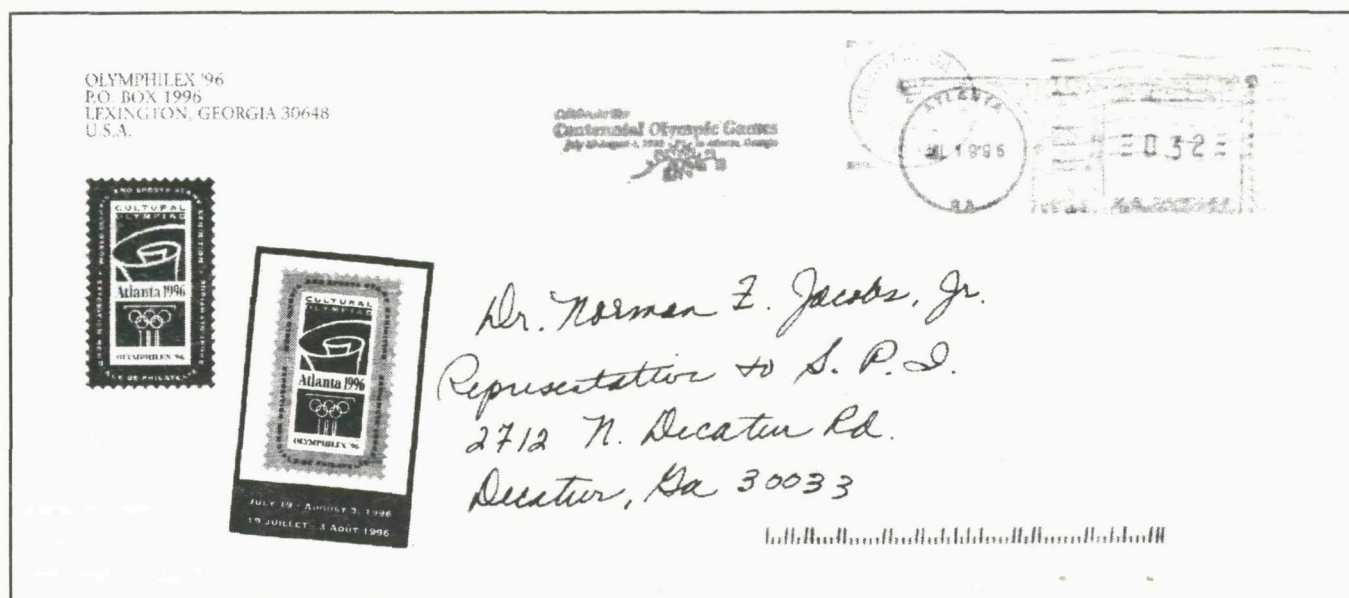 OLYMPHILEX '96
P.O. BOX 1996
LEXINGTON, GEORGIA 30648
U.S.A.
Celebrate the
Centennial Olympic Games
ATLANTA
1996
032
CULTURAL
OLYMPIAD
Atlanta 1996
OLYMPHILEX '96
CULTURAL
OLYMPIAD
Atlanta 1996
OLYMPHILEX '96
JULY 19 - AUGUST 3, 1996
19 JUILLET - 3 AOÛT 1996
Dr. Norman F. Jacobs, Jr.
Representative to S. P. I.
2712 N. Decatur Rd.
Decatur, Ga 30033